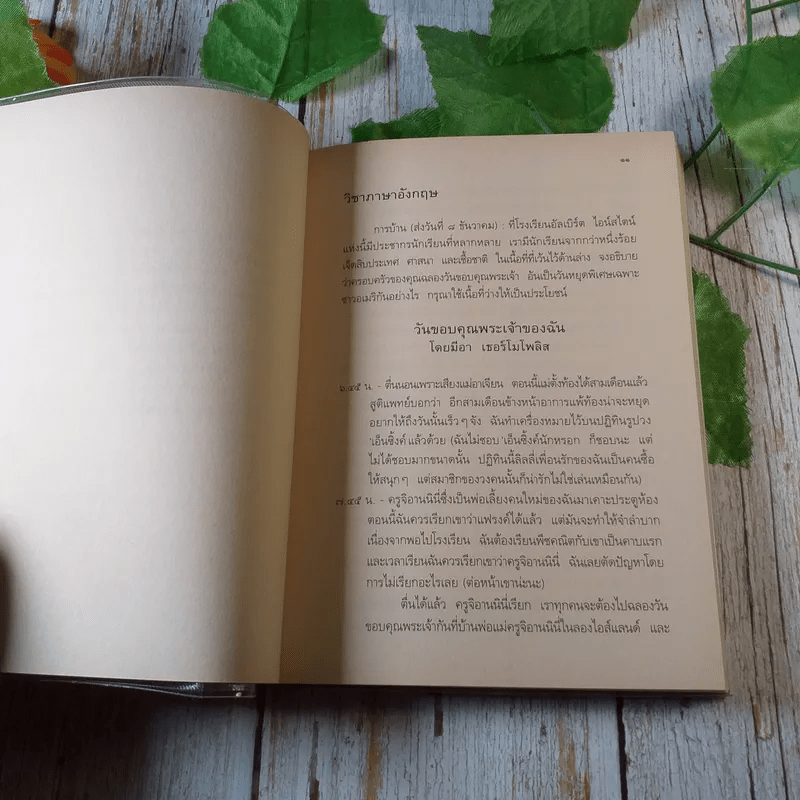 ๑๑
วิชาภาษาอังกฤษ
การบ้าน (ส่งวันที่ ๘ ธันวาคม) : ที่โรงเรียนอัลเบิร์ต ไอน์สไตน์
แห่งนี้มีประชากรนักเรียนที่หลากหลาย เรามีนักเรียนจากกว่าหนึ่งร้อย
เจ็ดสิบประเทศ ศาสนา และเชื้อชาติ ในเนื้อที่ที่เว้นไว้ด้านล่าง จงอธิบาย
ว่าครอบครัวของคุณฉลองวันขอบคุณพระเจ้า อันเป็นวันหยุดพิเศษเฉพาะ
ชาวอเมริกันอย่างไร กรุณาใช้เนื้อที่ว่างให้เป็นประโยชน์
วันขอบคุณพระเจ้าของฉัน
โดยมีอา เธอร์โมโพลิส
๖.๔๕ น. - ตื่นนอนเพราะเสียงแม่อาเจียน ตอนนี้แม่ตั้งท้องได้สามเดือนแล้ว
สูติแพทย์บอกว่า อีกสามเดือนข้างหน้าอาการแพ้ท้องน่าจะหยุด
อยากให้ถึงวันนั้นเร็วๆจัง ฉันทำเครื่องหมายไว้บนปฏิทินรูปวง
'เอ็นซิ้งค์ แล้วด้วย (ฉันไม่ชอบ 'เอ็นซิ้งค์นักหรอก ก็ชอบนะ แต่
ไม่ได้ชอบมากขนาดนั้น ปฏิทินนี้ลิลลี่เพื่อนรักของฉันเป็นคนซื้อ
ให้สนุกๆ แต่สมาชิกของวงคนนั้นก็น่ารักไม่ใช่เล่นเหมือนกัน)
๗.๔๕ น. - ครูจิอานนินี่ซึ่งเป็นพ่อเลี้ยงคนใหม่ของฉันมาเคาะประตูห้อง
ตอนนี้ฉันควรเรียกเขาว่าแฟรงค์ได้แล้ว แต่มันจะทำให้จำลำบาก
เนื่องจากพอไปโรงเรียน ฉันต้องเรียนพีชคณิตกับเขาเป็นคาบแรก
และเวลาเรียนฉันควรเรียกเขาว่าครูจิอานนินี่ ฉันเลยตัดปัญหาโดย
การไม่เรียกอะไรเลย (ต่อหน้าเขาน่ะนะ)
ตื่นได้แล้ว ครูจิอานนินี่เรียก เราทุกคนจะต้องไปฉลองวัน
ขอบคุณพระเจ้ากันที่บ้านพ่อแม่ครูจิอานนินี่ในลองไอส์แลนด์ และ